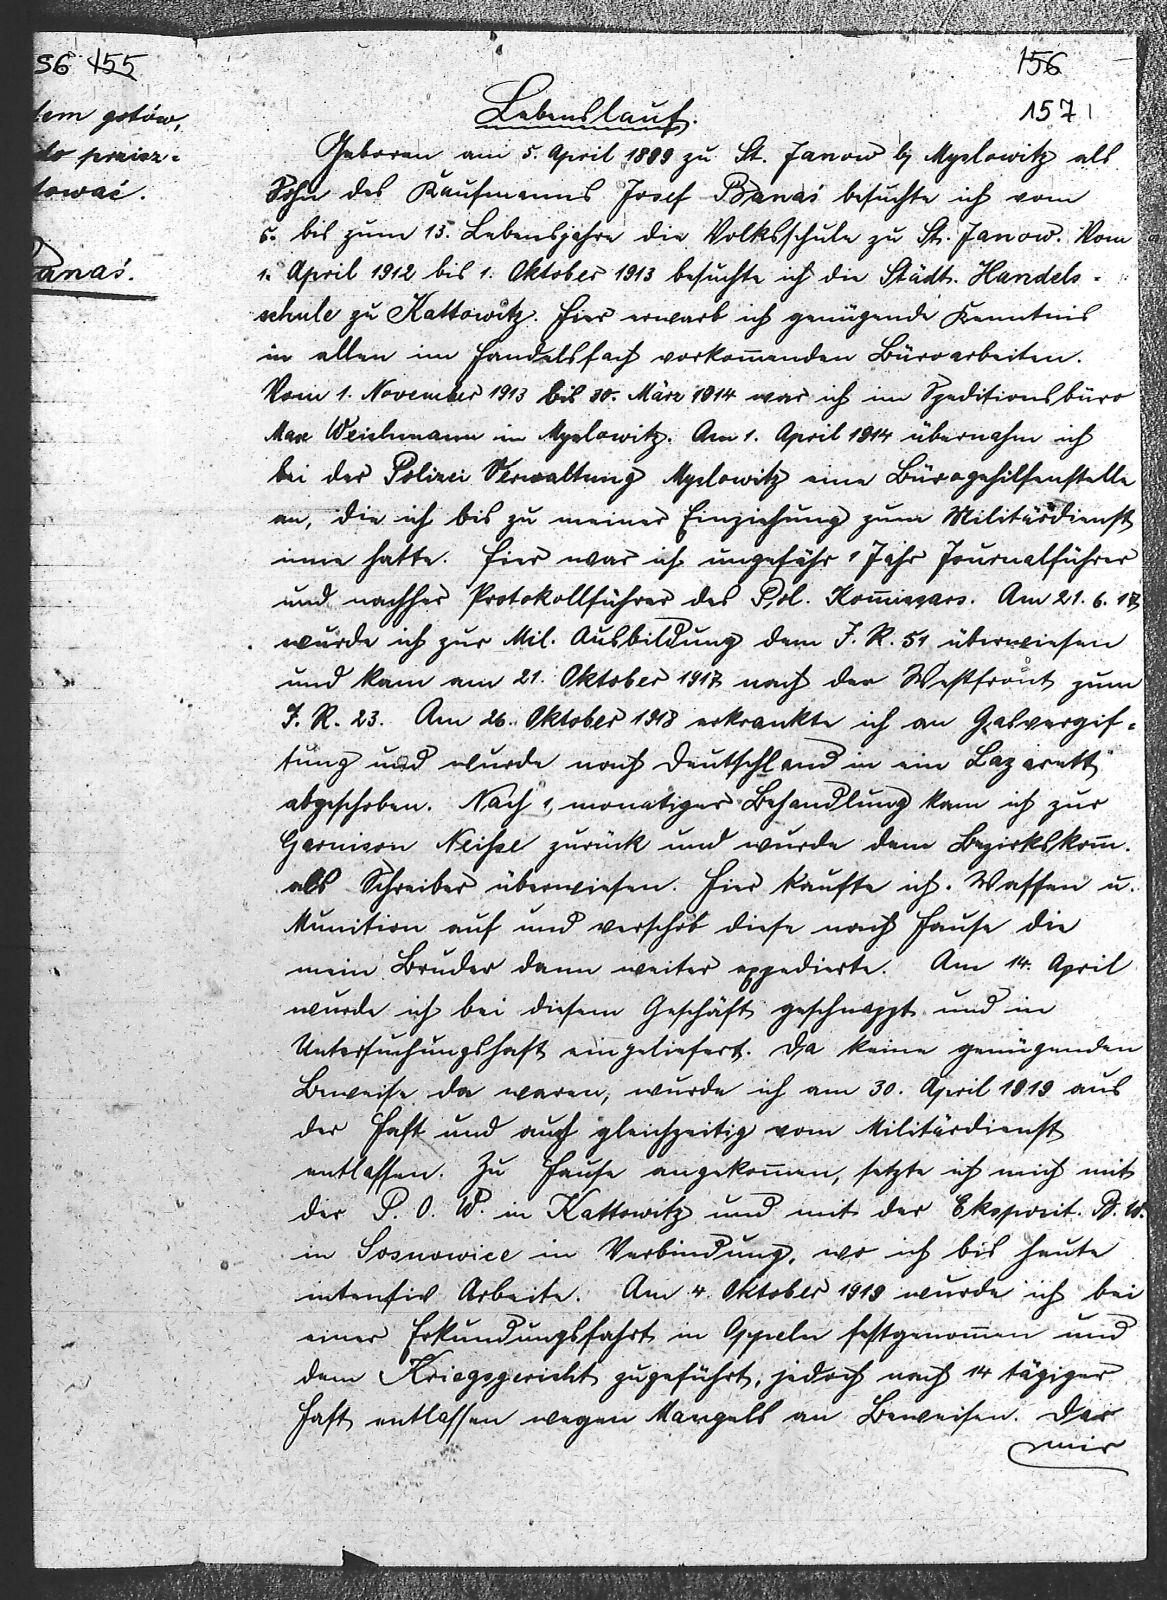 56 155
dem gotów,
do przier-
tować.
Banaś.
156
157
Lebenslauf.
Geboren am 5. April 1899 zu St. Janow b/ Myslowitz als
Sohn des Kaufmanns Josef Banaś besuchte ich vom
6. bis zum 13. Lebensjahre die Volksschule zu St. Janow. Vom
1. April 1912 bis 1. Oktober 1913 besuchte ich die Städt. Handels-
schule zu Kattowitz. Hier erwarb ich genügende Kenntnis
in allen im Handelsfach vorkom̄enden Büroarbeiten.
Vom 1. November 1913 bis 30. März 1914 war ich im Speditionsbüro
Max Weichmann in Myslowitz. Am 1. April 1914 übernahm ich
bei der Polizei Verwaltung Myslowitz eine Bürogehilfenstelle
an, die ich bis zu meiner Einziehung zum Militärdienst
inne hatte. Hier war ich ungefähr 1 Jahr Journalführer
und nachher Protokollführer des Pol. Kom̄issars. Am 21. 6. 17
wurde ich zur Mil. Ausbildung dem J. R. 51 überwiesen
und kam am 21. Oktober 1917 nach der Westfront zum
J. R. 23. Am 26. Oktober 1918 erkrankte ich an Gasvergif-
tung und wurde nach Deutschland in ein Lazarett
abgeschoben. Nach 1 monatiger Behandlung kam ich zur
Garnison Neiße zurück und wurde dem Bezirkskom̄.
als Schreiber überwiesen. Hier kaufte ich Waffen u.
Munition auf und verschob diese nach Hause die
mein Bruder dann weiter expedierte. Am 14. April
wurde ich bei diesem Geschäft geschnappt und in
Untersuchungshaft eingeliefert. Da keine genügenden
Beweise da waren, wurde ich am 30. April 1919 aus
der Haft und auch gleichzeitig vom Militärdienst
entlassen. Zu Hause angekom̄en, setzte ich mich mit
der P. O. W. in Kattowitz und mit der Ekspozit. B. W.
in Sosnowice in Verbindung, wo ich bis heute
intensiv Arbeite. Am 4. Oktober 1919 wurde ich bei
einer Erkundungsfahrt in Oppeln festgenom̄en und
dem Kriegsgericht zugeführt, jedoch nach 14 tägiger
Haft entlassen wegen Mangels an Beweisen. Der
mir